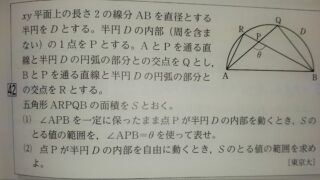 xy平面上の長さ2の線分ABを直径とする
半円をDとする。半円Dの内部(周を含ま
ない)の1点をPとする。AとPを通る直
線と半円Dの円弧の部分との交点をQとし,
BとPを通る直線と半円Dの円弧の部分と
の交点をRとする。
五角形ARPQBの面積をSとおく。
(1) ∠APBを一定に保ったまま点Pが半円Dの内部を動くとき, Sの
とる値の範囲を, ∠APB=θを使って表せ。
(2) 点Pが半円Dの内部を自由に動くとき, Sのとる値の範囲を求め
よ。 [東京大]
42
Q
R
D
P
θ
A
B